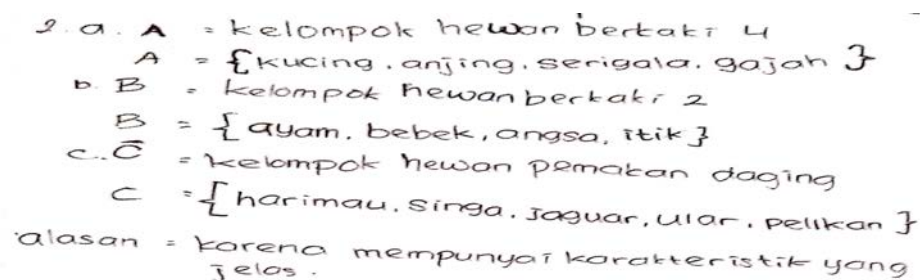 2. a. A = kelompok hewan berkaki 4
A = {kucing, anjing, serigala, gajah}
b. B = kelompok hewan berkaki 2
B = {ayam, bebek, angsa, itik}
c. C = kelompok hewan pemakan daging
C = {harimau, singa, Jaguar, ular, pelikan}
alasan = karena mempunyai karakteristik yang
jelas.